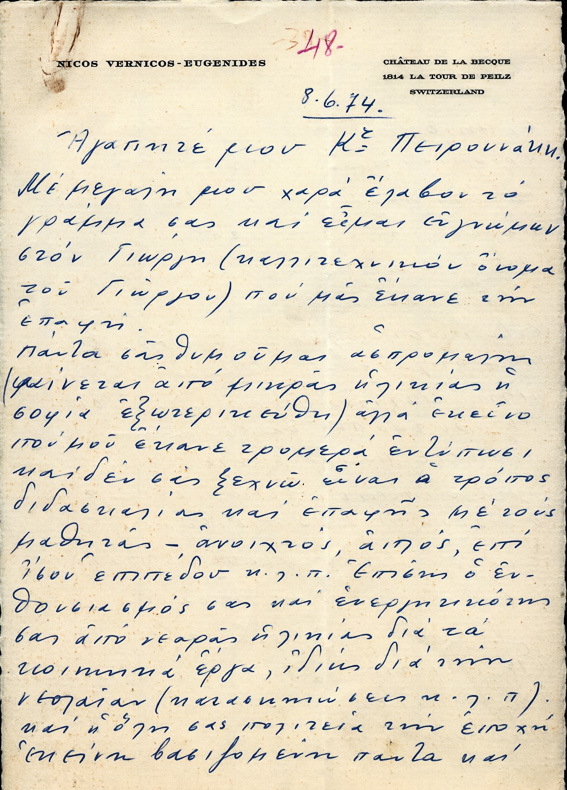 48-
NICOS VERNICOS-EUGENIDES
CHÂTEAU DE LA BECQUE
1814 LA TOUR DE PEILZ
SWITZERLAND
8.6.74.
Ἀγαπητέ μου Κε Πειρουνάκη.
Μέ μεγάλη μου χαρά ἔλαβον τό
γράμμα σας καί εἶμαι εὐγνώμων
στόν Γιώργη (καλλιτεχνικόν ὄνομα
τοῦ Γιώργου) πού μᾶς ἔκανε τήν
ἐπαφή.
Πάντα σᾶς θυμοῦμαι ἀσπρομάλλη
(φαίνεται ἀπό μικρᾶς ἡλικίας ἡ
σοφία ἐξωτερικεύθη) ἀλλά ἐκεῖνο
πού μοῦ ἔκανε τρομερά ἐντύπωσι
καί δέν σᾶς ξεχνῶ εἶναι ὁ τρόπος
διδασκαλίας καί ἐπαφῆς μέ τούς
μαθητάς - ἀνοιχτός, ἁπλός, ἐπί
ἴσου ἐπιπέδου κ.λ.π. Ἐπίσης ὁ ἐν-
θουσιασμός σας καί ἐνεργητικότης
σας ἀπό νεαρᾶς ἡλικίας διά τά
κοινωνικά ἔργα, ἰδίως διά τήν
νεολαίαν (κατασκηνώσεις κ.λ.π).
καί ἡ ὅλη σας πολιτεία τήν ἐποχή
ἐκείνη βασιζομένη πάντα καί